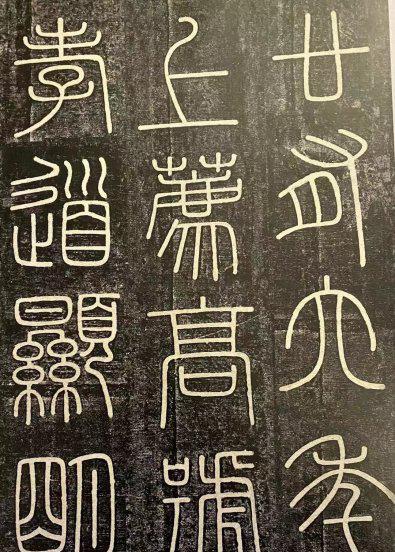 廿有六年
上薦高號
孝道顯明